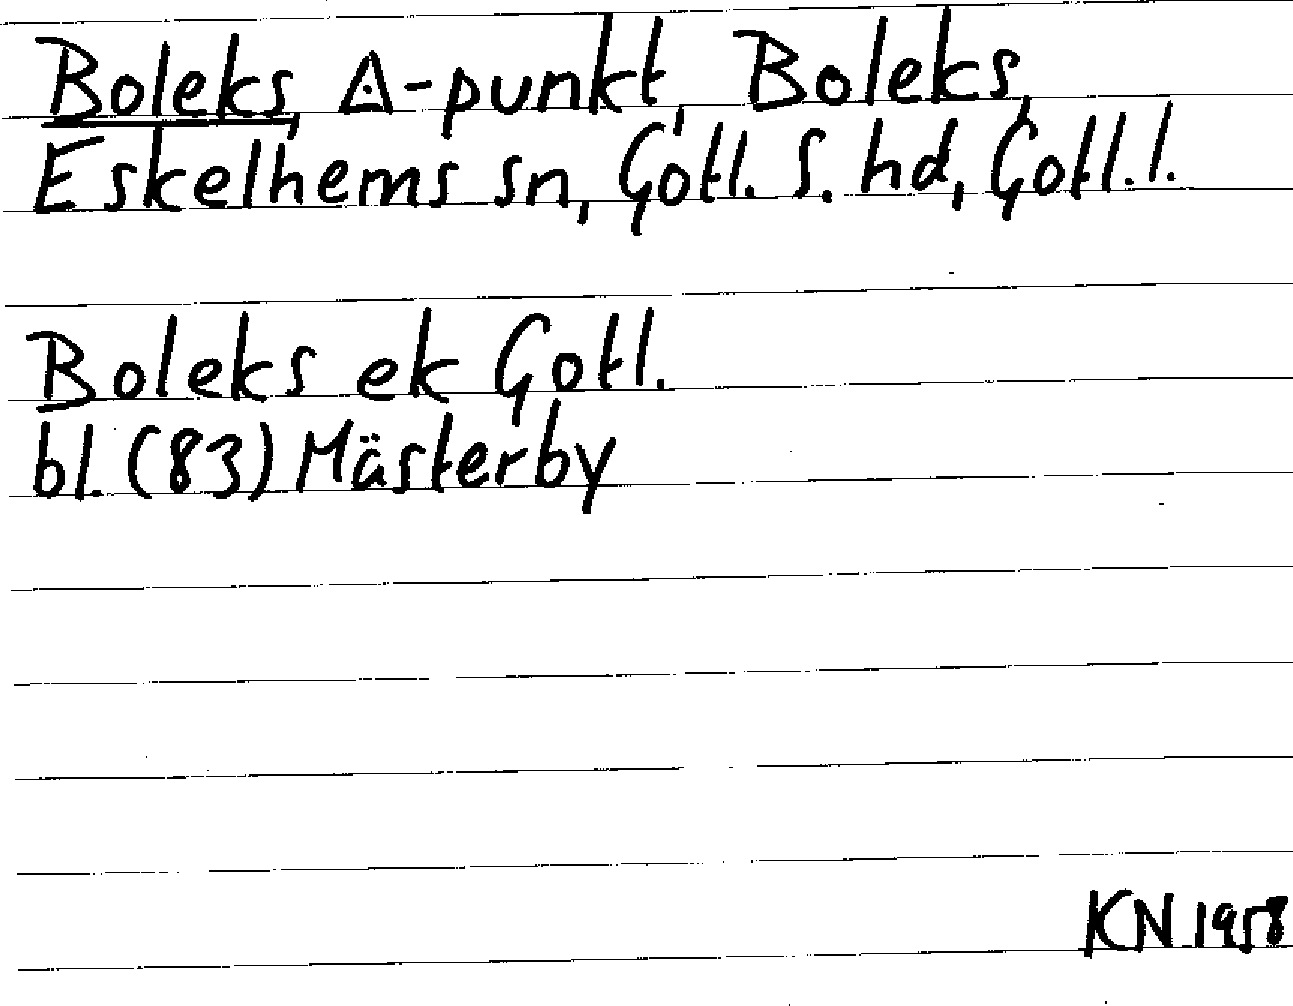 Boleks, ◬-punkt, Boleks,
Eskelhems sn, Gotl. S. hd, Gotl. l.
Boleks ek Gotl.
bl. (83) Mästerby
KN 1958